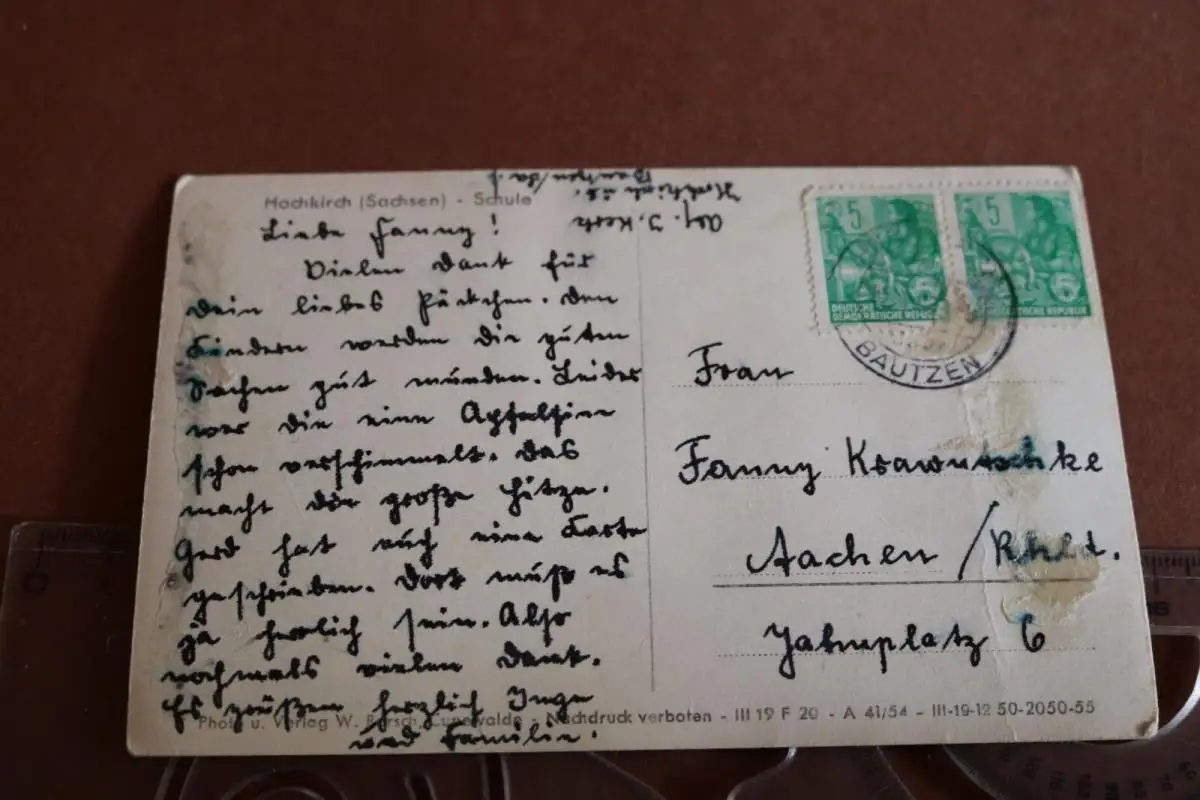 Hochkirch (Sachsen) - Schule
Abs. J. Kert
Hochkirch üb.
Bautzen/Sa.
Liebe Fanny!
Vielen Dank für
Dein liebes Päckchen. Den
Kindern werden die guten
Sachen gut munden. Leider
war die eine Apfelsine
schon verschimmelt. Das
macht die große Hitze.
Gerd hat auch eine Karte
geschrieben. Dort muß es
ja herrlich sein. Also
nochmals vielen Dank.
Es grüßen herzlich Inge
und Familie.
5
DEUTSCHE
DEMOKRATISCHE REPUBLIK
5
DEMOKRATISCHE REPUBLIK
BAUTZEN
Frau
Fanny Krawutschke
Aachen / Rhld.
Jahnplatz 6
Photo u. Verlag W. Bursch, Cunewalde - Nachdruck verboten - III 19 F 20 - A 41/54 - III-19-12 50-2050-55